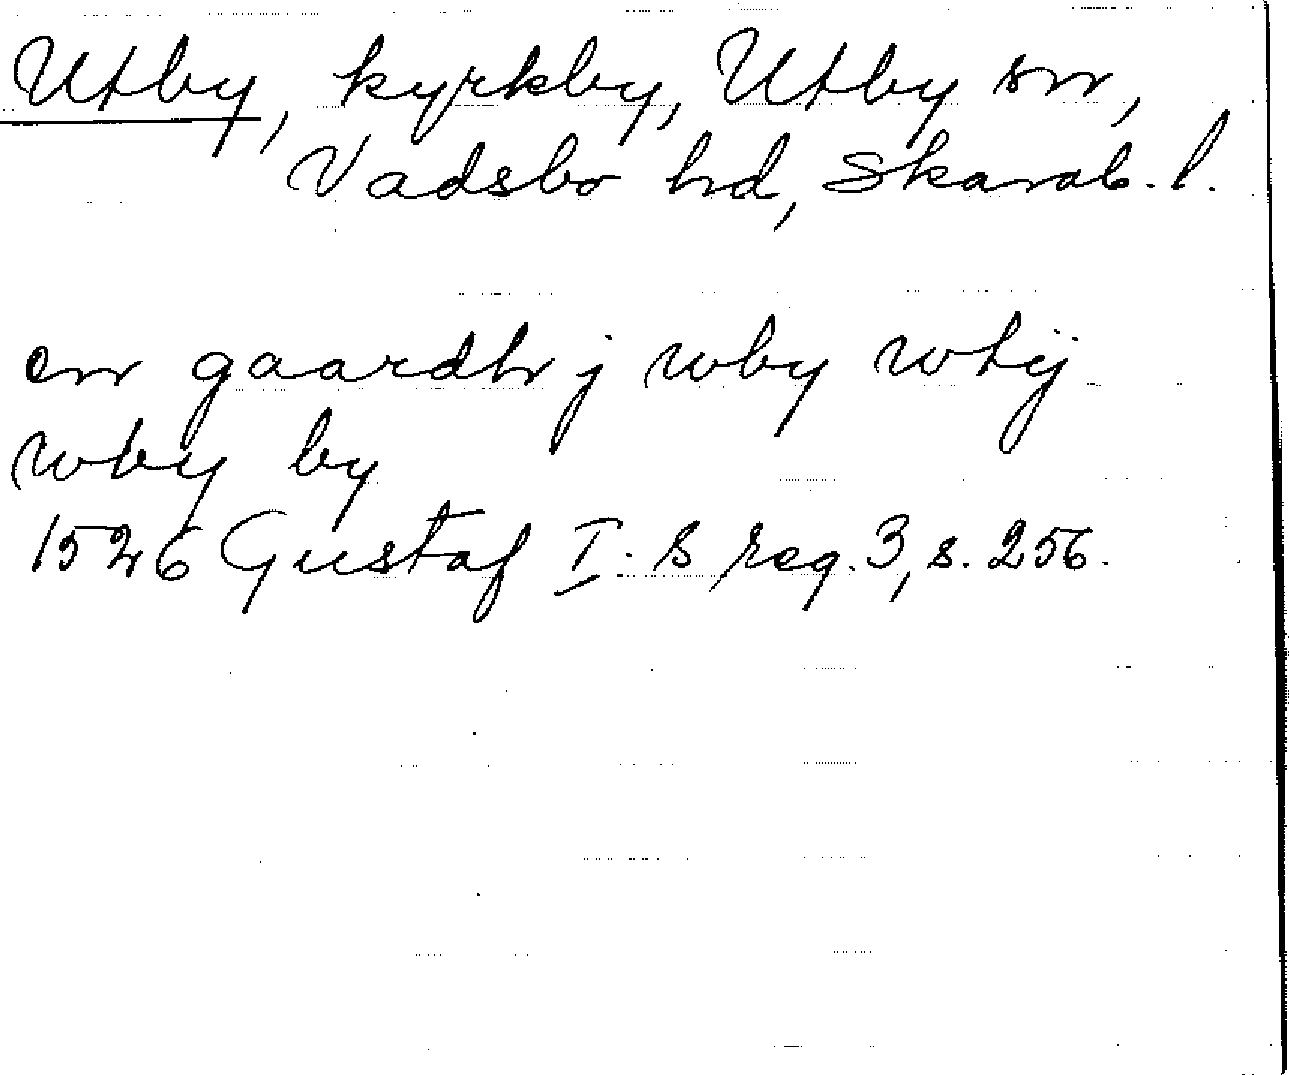 Utby, kyrkby, Utby sn,
Vadsbo hd, Skarab. l.
en gaardh j wby wtij
wby by
1526 Gustaf I.s reg. 3, s. 256.